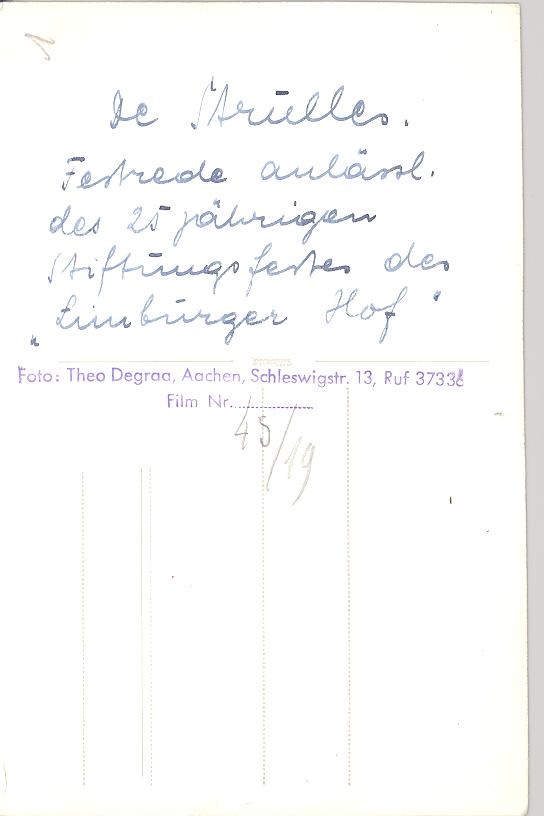 1
De Strulles.
Festrede anlässl.
des 25 jährigen
Stiftungsfestes des
„Limburger Hof"
Foto: Theo Degraa, Aachen, Schleswigstr. 13, Ruf 3733
Film Nr...................
45/19